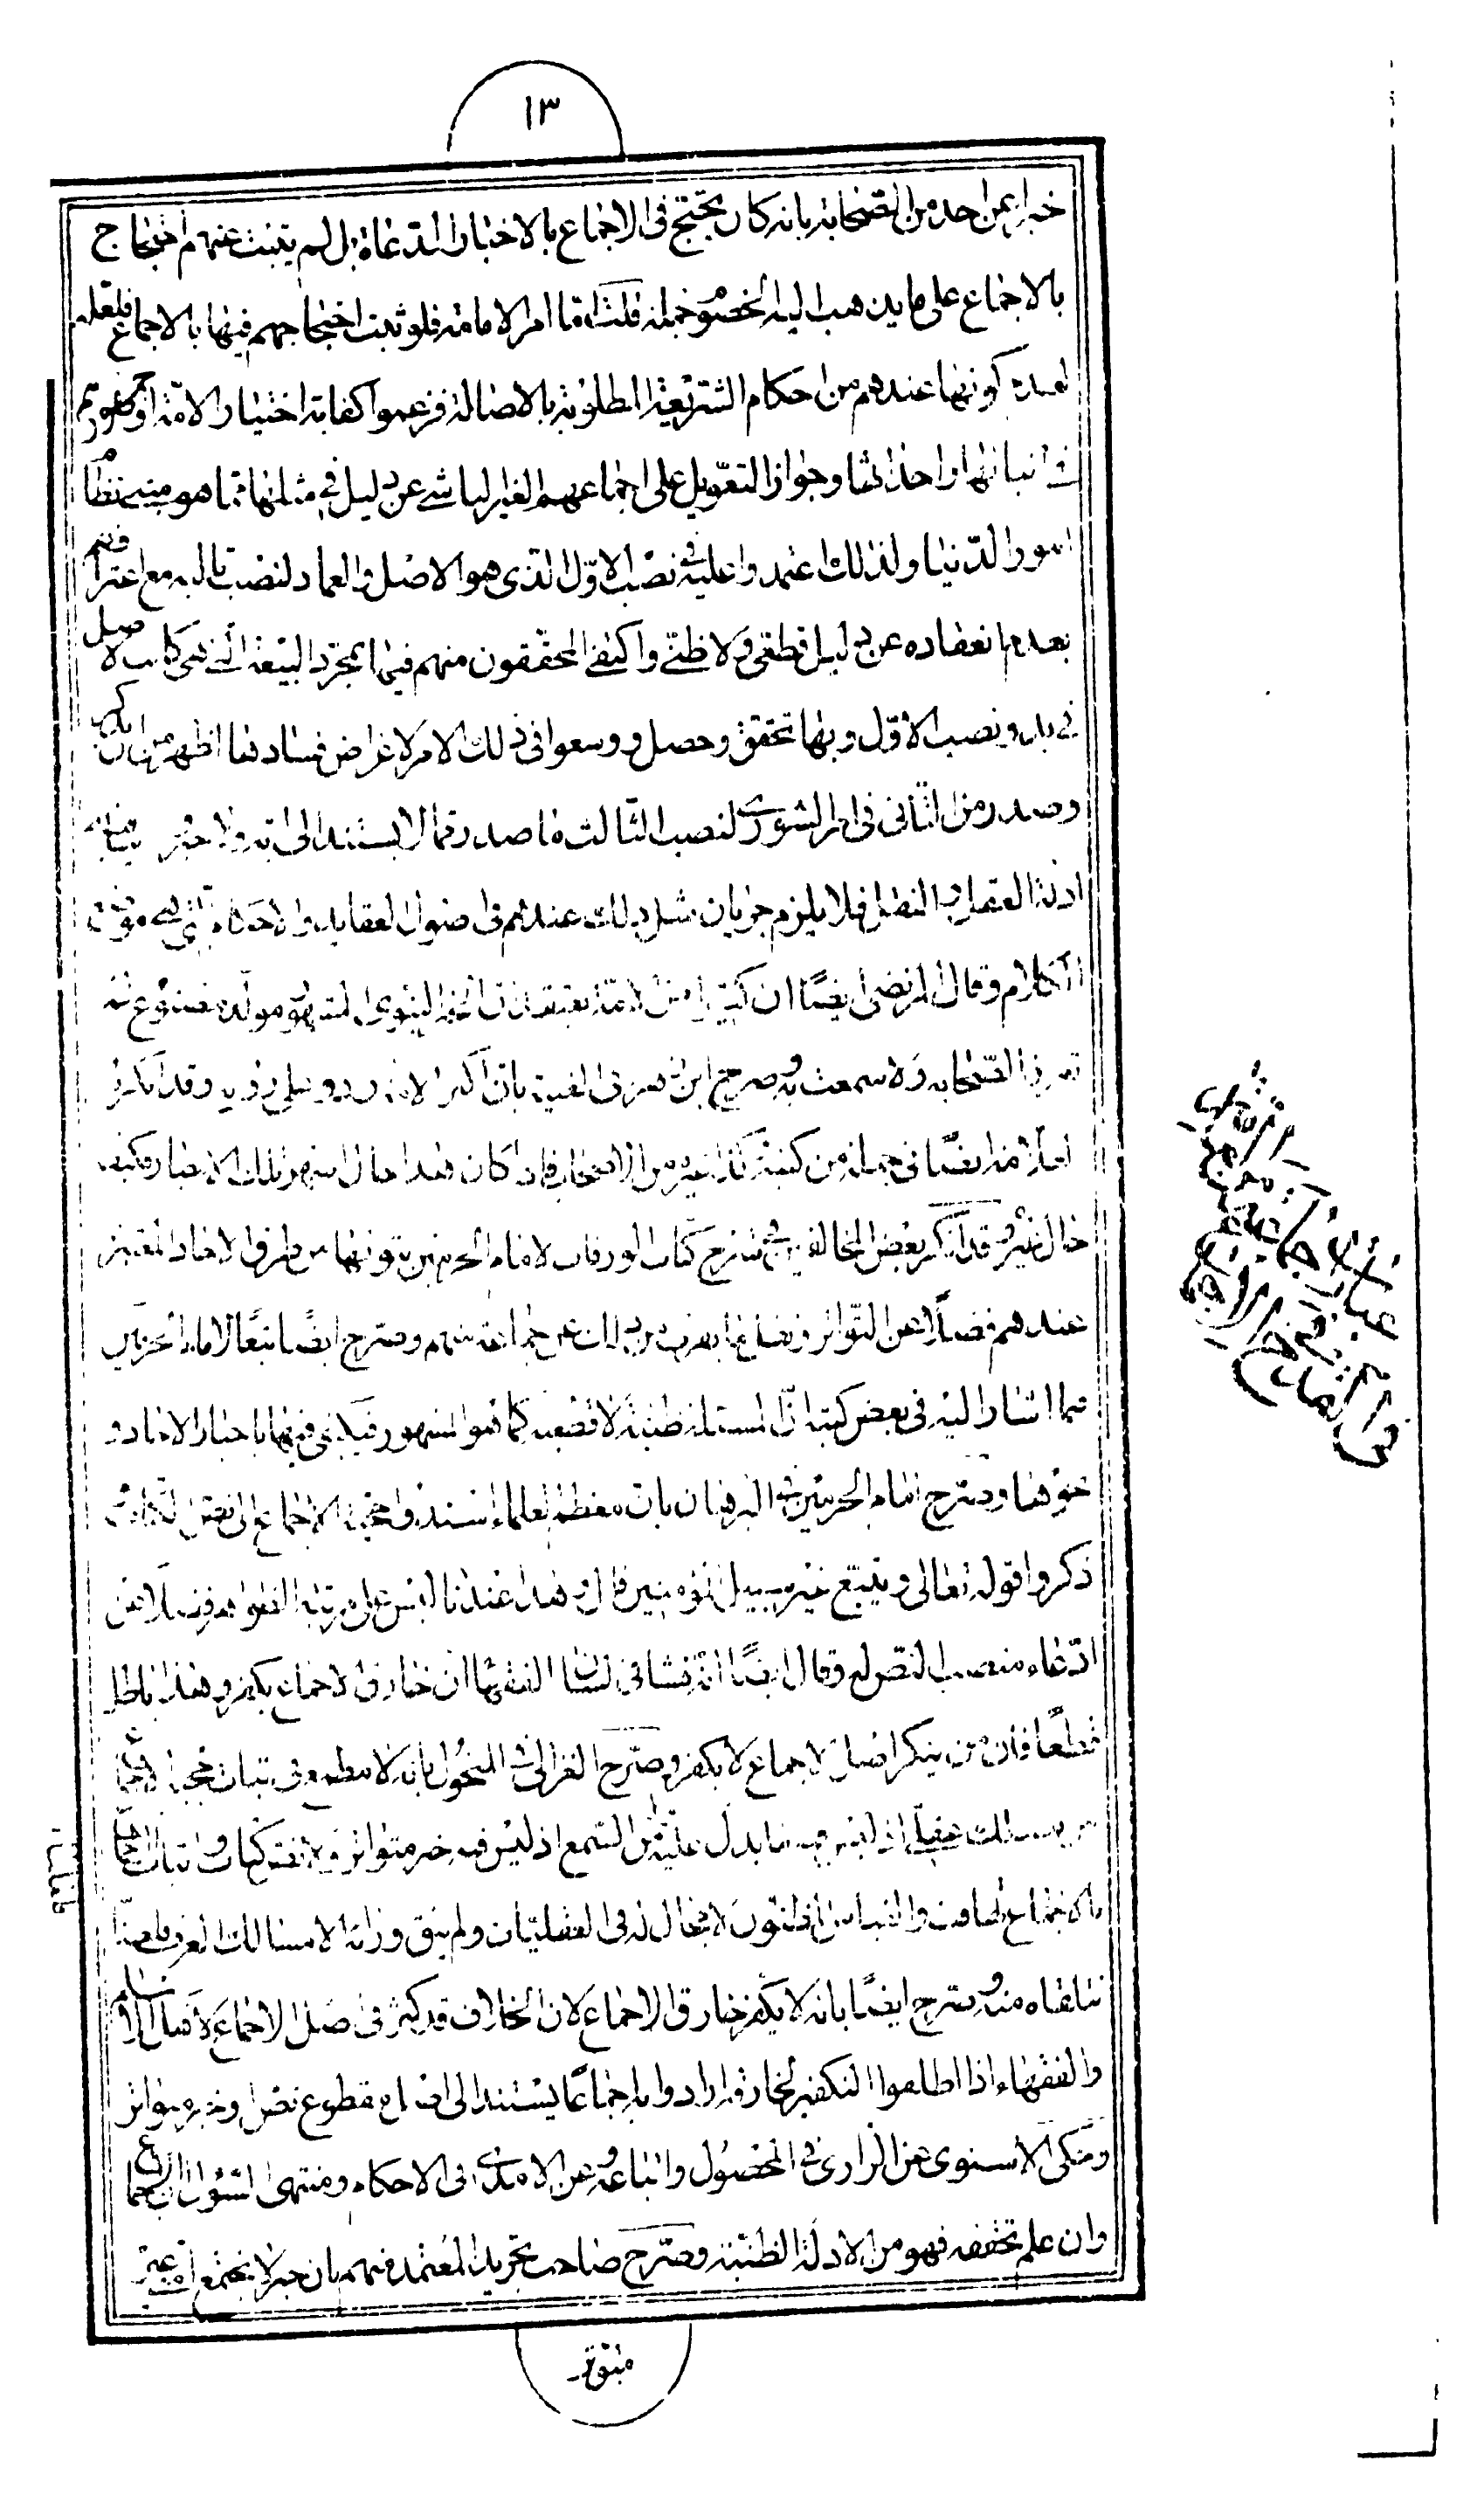 ١٣
خبرا عن احد من الصحابة بانه كان يحتج فى الاجماع بالاخبار المدعاة بل لم يثبت عنهم احتجاج
بالاجماع على ما يذهب اليه الخصوم جملة قلت اما امر الامامة فلو ثبت احتجاجهم فيها بالاجماع فلعله
لعدم كونها عندهم من احكام الشريعة المطلوبة بالاصالة فزعموا كفاية اختيار الامة او جمهورهم
فى اثباتها واحداثها وجواز التعويل على اجماعهم الغير الناشى عن دليل فى مثلها مما هو مبنى نظام
امور الدنيا ولذلك اعتمدوا عليه فى نصب الاول الذى هو الاصل والعماد لنصب تاليه مع اعترافهم
بعدم انعقاده عن دليل قطعى ولا ظنى واكتفى المحققون منهم فيها بمجرد البيعة التى هى كانت الاصل
فى بدو نصب الاول وبها تحقق وحصل ووسعوا فى ذلك الامر لاغراض فسادها اظهر من ان يذكر
وصدر من الثانى فى امر الشورى لنصب الثالث ما صدر مما لا يستند الى اية ولا خبر
ادلة العقل و النظر فلا يلزم جريان مثل ذلك عندهم فى اصول العقايد والاحكام التى هى
الكلام وقال المرتضى ايضا ان كثيرا من الامة يعتقد ان الخبر النبوى
الصحابة ولا سمعت به وصرح ابن زهرة فى الغنية بان اكثر الامة وقد انكر
العلامة ايضا فى جملة من كتبه وكذا غيره من الاصحاب فاذا كان هذا حال اشهر تلك الاخبار فكيف
حال غيره وقد انكر بعض المخالفين فى شرح كتاب الورقات لامام الحرمين ثبوتها من طرق الاحاد المعتبرة
عندهم فضلا عن التواتر ونقل ما يقرب من ذلك عن جماعة منهم وصرح ايضا تبعا لامام الحرمين
فيما اشار اليه فى بعض كتبه ان المسئلة ظنية لا قطعية كما هو المشهور فيكتفى فيها باخبار الاحاد و
نحوها وصرح امام الحرمين فى البرهان بان معظم العلماء اسندوا حجية الاجماع الى نص الكتاب
ذكروا قوله تعالى ويتبع غير سبيل المؤمنين قال وهذا عندنا ليس على رتبة الظواهر فضلا عن
ادعاء منصب النص له وقال ايضا انه فشا فى لسان الفقهاء ان خارق الاجماع يكفر وهذا باطل
قطعا فان من ينكر اصل الاجماع لا يكفر وصرح الغزالى فى المنخول بانه لا مطمع فى اثبات حجية الاجماع
عقلا اذ ليس فيه ما يدل عليه من السمع اذ ليس فيه خبر متواتر ولا نص كتاب واثبات الاجماع
بالاجماع تهافت والقياس المظنون لا مجال له فى القطعيات ولم يبق وراءه الا مسالك العرف فلعلنا
نتلقاه منه وصرح ايضا بانه لا يكفر خارق الاجماع لان الخلاف قد كثر فى اصل الاجماع لاهل الاسلام
والفقهاء اذا اطلقوا التكفير لخارقه ارادوا به اجماعا يستند الى اصل مقطوع من نص او خبر متواتر
وحكى الاسنوى عن الرازى فى المحصول واتباعه وعن الامدى فى الاحكام ومنتهى السؤل ان الاجماع
وان علم تحققه فهو من الادلة الظنية وصرح صاحب تحرير المعتمد منهم بان خبر لا يجتمع امتى غير
متواتر